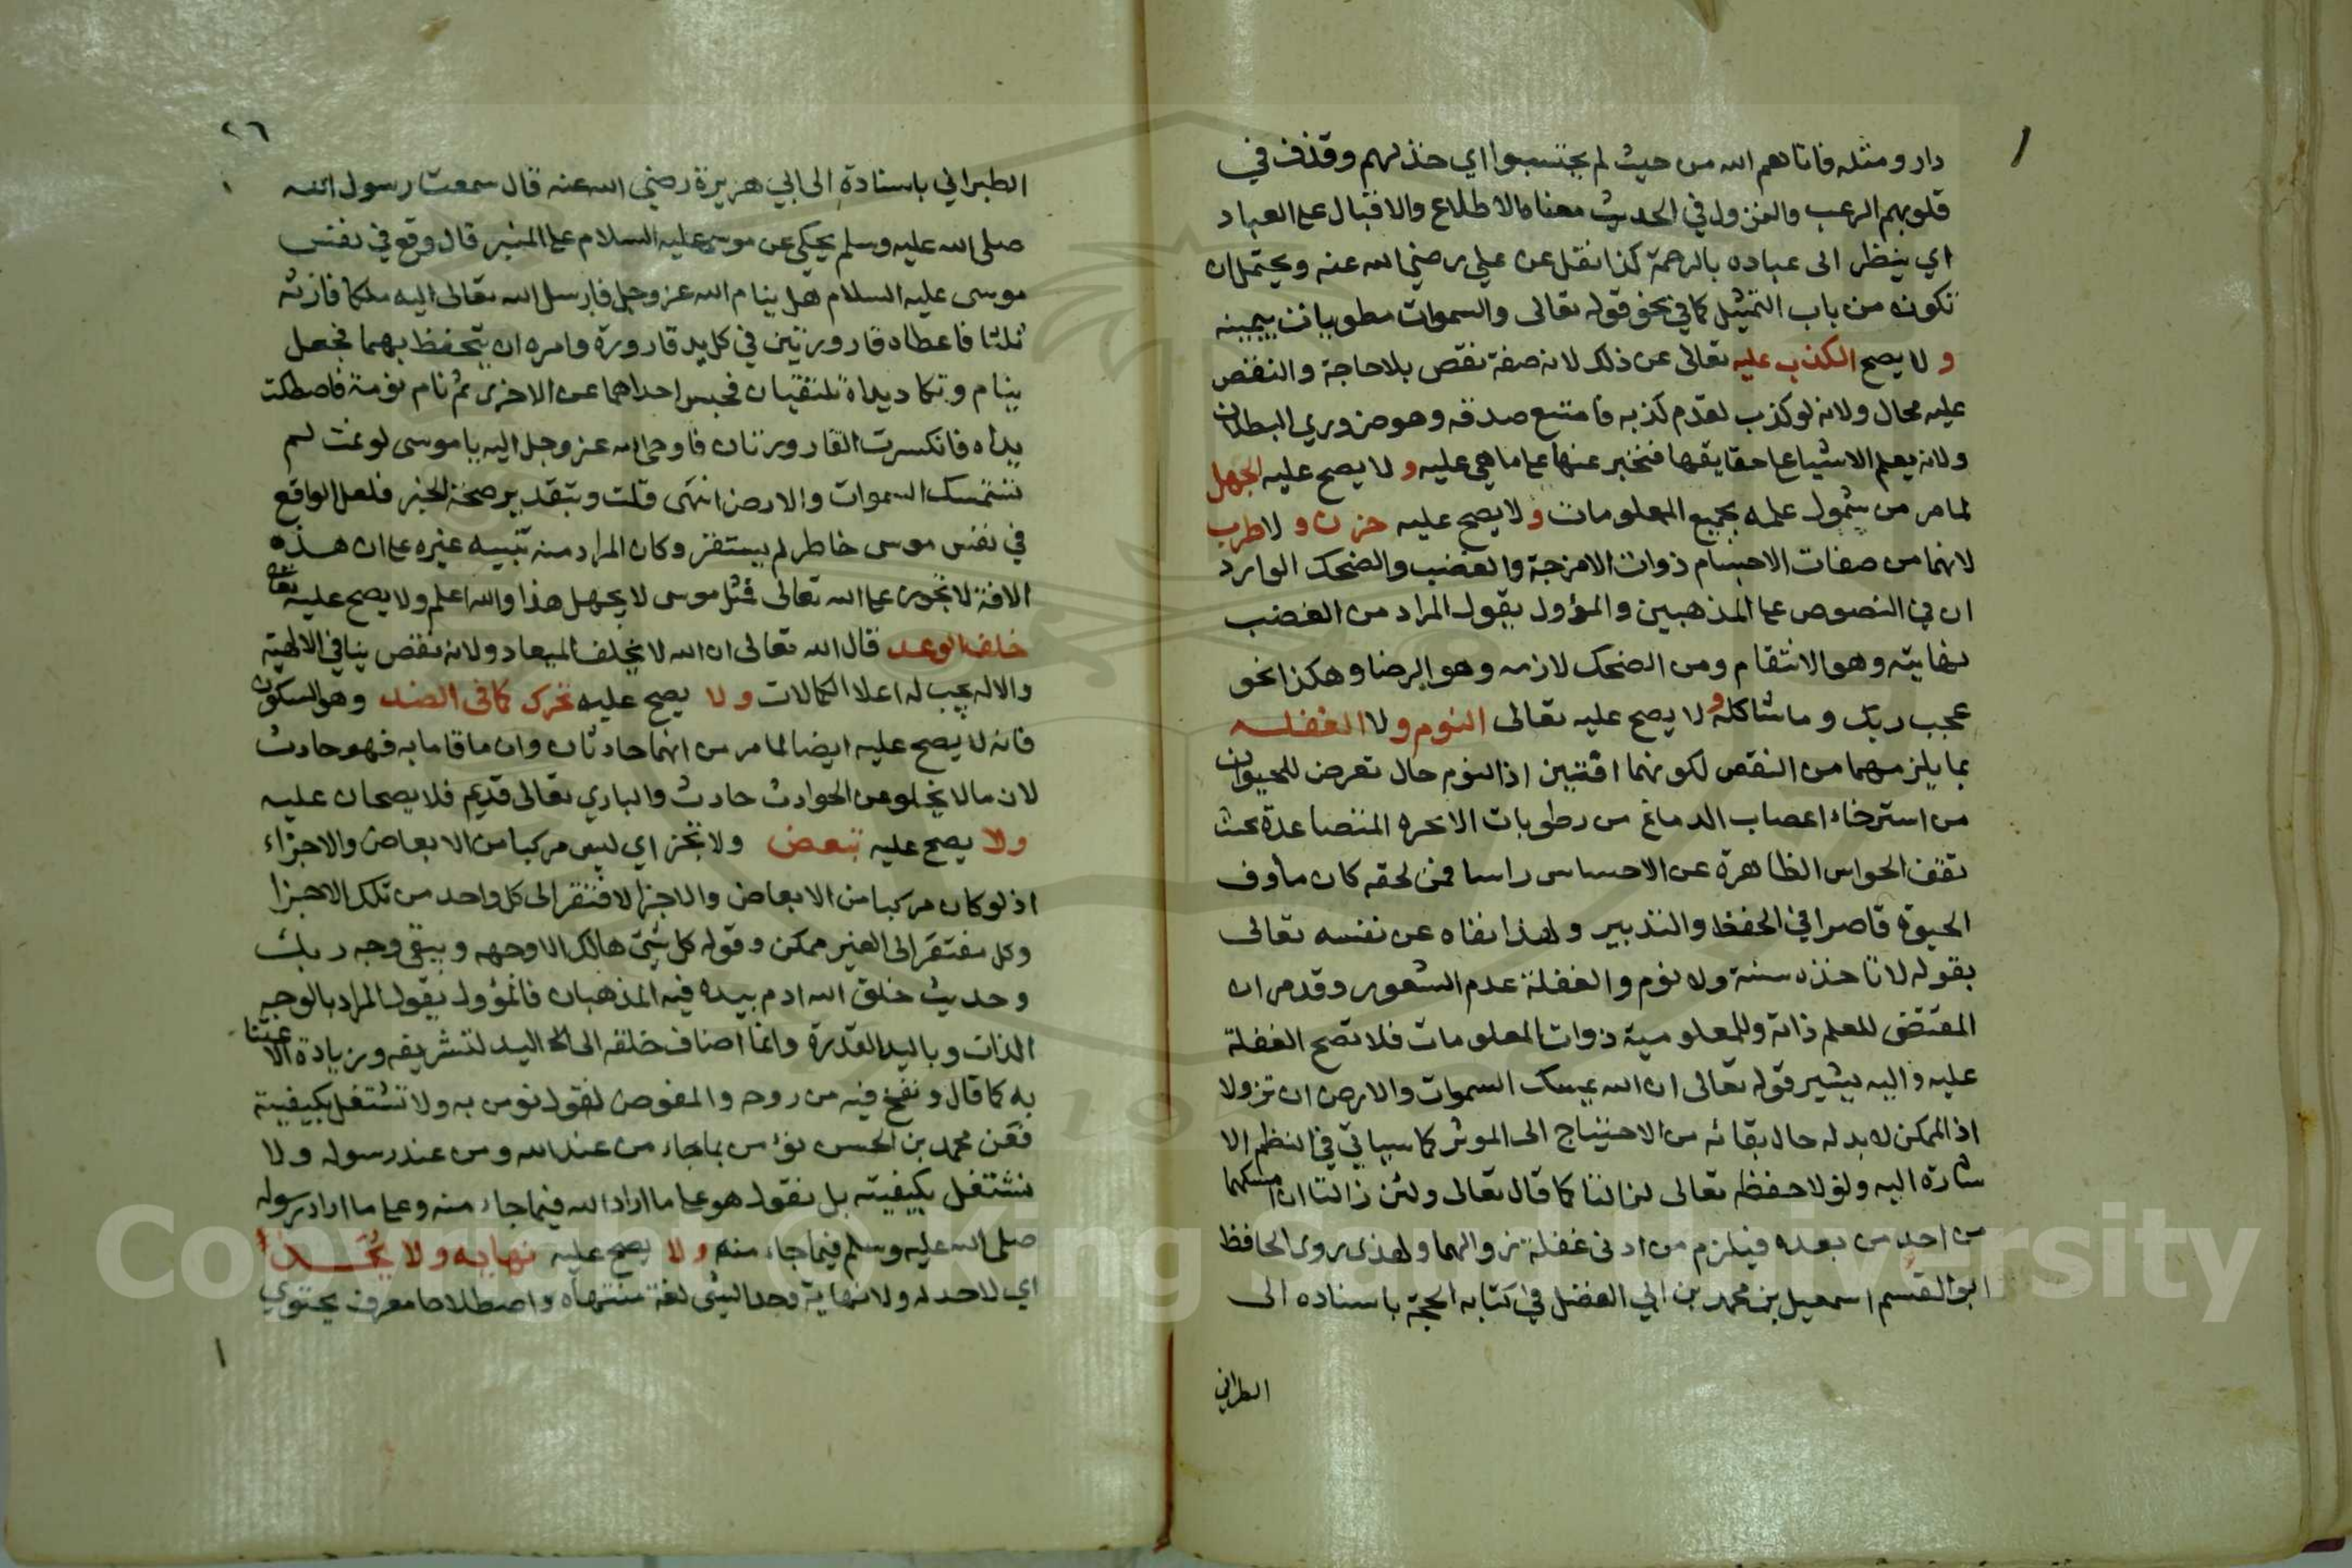 دار ومثله فاتاهم الله من حيث لم يحتسبوا اي خذلهم وقذف في
قلوبهم الرعب والنزول في الحديث معناه الاطلاع والاقبال على العباد
اي ينظر الى عباده بالرحمة كذا نقل عن علي رضي الله عنه ويحتمل ان
تكون من باب التمثيل كما في نحو قوله تعالى والسموات مطويات بيمينه
و لا يصح الكذب عليه تعالى عن ذلك لانه صفة نقص بلا حاجة والنقص
عليه محال ولانه لو كذب لقدم كذبه فامتنع صدقه وهو ضروري البطلان
ولانه يعلم الاشيا على حقايقها فتخبر عنها على ما هي عليه و لا يصح عليه الجهل
لما مر من شمول علمه بجميع المعلومات و لا يصح عليه حزن و لا طرب
لانهما من صفات الاجسام ذوات الامزجة والغضب والضحك الوارد
ان في النصوص على المذهبين والمؤول يقول المراد من الغضب
نهايته وهو الانتقام ومن الضحك لازمه وهو الرضا وهكذا نحو
عجب ربك وما شاكله و لا يصح عليه تعالى النوم و لا الغفله
بما يلزمهما من النقص لكونهما افتين اذ النوم حال تعرض للحيوان
من استرخاء اعصاب الدماغ من رطوبات الابخره المتصاعدة بحيث
تقف الحواس الظاهرة عن الاحساس راسا فمن لحقه كان ماوف
الحيوة قاصرا في الحفظ والتدبير ولهذا نفاه عن نفسه تعالى
بقوله لا تاخذه سنة ولا نوم والغفلة عدم الشعور وقد مر ان
المقتضى للعلم ذاته وللمعلومية ذوات المعلومات فلا تصح الغفلة
عليه واليه يشير قوله تعالى ان الله يمسك السموات والارض ان تزولا
اذ الممكن لا بد له حال بقائه من الاحتياج الى الموثر كما سياتي في النظم الا
شارة اليه ولولا حفظه تعالى لزالتا كما قال تعالى ولئن زالتا ان امسكهما
من احد من بعده فيلزم من ادنى غفلة زوالهما ولهذى روى الحافظ
ابو القسم اسمعيل بن محمد بن ابي الفضل في كتابه الحجة باسناده الى
الطبراني
٢٦
الطبراني باسنادة الى ابي هريرة رضي الله عنه قال سمعت رسول الله
صلى الله عليه وسلم يحكي عن موسى عليه السلام على المنبر قال وقع في نفس
موسى عليه السلام هل ينام الله عز وجل فارسل الله تعالى اليه ملكا فارقه
ثلثا فاعطاه قارورتين في كل يد قارورة وامره ان يتحفظ بهما فجعل
ينام وتكاد يداه تلتقيان فحبس احداهما عن الاخرى ثم نام نومة فاصطكت
يداه فانكسرت القارورتان فاوحى الله عز وجل اليه يا موسى لو نمت لم
تستمسك السموات والارض انتهى قلت وبتقدير صحة الخبر فلعل الواقع
في نفس موسى خاطر لم يستقر وكان المراد منه تنبيه غيره على ان هذه
الافة لا تجوز على الله تعالى فمثل موسى لا يجهل هذا والله اعلم ولا يصح عليه تعالى
خلف الوعد قال الله تعالى ان الله لا يخلف الميعاد ولانه نقص ينافي الالهية
والاله يجب له اعلا الكمالات و لا يصح عليه تحرك كما فى الضد وهو السكون
فانه لا يصح عليه ايضا لما مر من انهما حادثان وان ما قاما به فهو حادث
لان ما لا يخلو عن الحوادث حادث والباري تعالى قديم فلا يصحان عليه
ولا يصح عليه تبعض ولا تجز اي ليس مركبا من الابعاض والاجزاء
اذ لو كان مركبا من الابعاض والاجزا لافتقر الى كل واحد من تلك الاجزا
وكل مفتقر الى الغير ممكن وقوله كل شيئ هالك الا وجهه ويبقى وجه ربك
وحديث خلق الله ادم بيده فيه المذهبان فالمؤول يقول المراد بالوجه
الذات وباليد القدرة وانما اضاف خلقه الى اليد لتشريفه وزيادة الاعتنا
به كما قال ونفخ فيه من روحه والمفوض يقول نومن به ولا نشتغل بكيفيته
فعن محمد بن الحسن نؤمن بما جاء من عند الله ومن عند رسوله ولا
نشتغل بكيفيته بل نقول هو على ما اراد الله فيما جاء منه وعلى ما اراد رسوله
صلى الله عليه وسلم فيما جاء منه و لا يصح عليه نهايه و لا يُحَد
اي لا حد له ولا نهاية وحد الشي لغة منتهاه واصطلاحا معرف يحتوي
Copyright © King Saud University